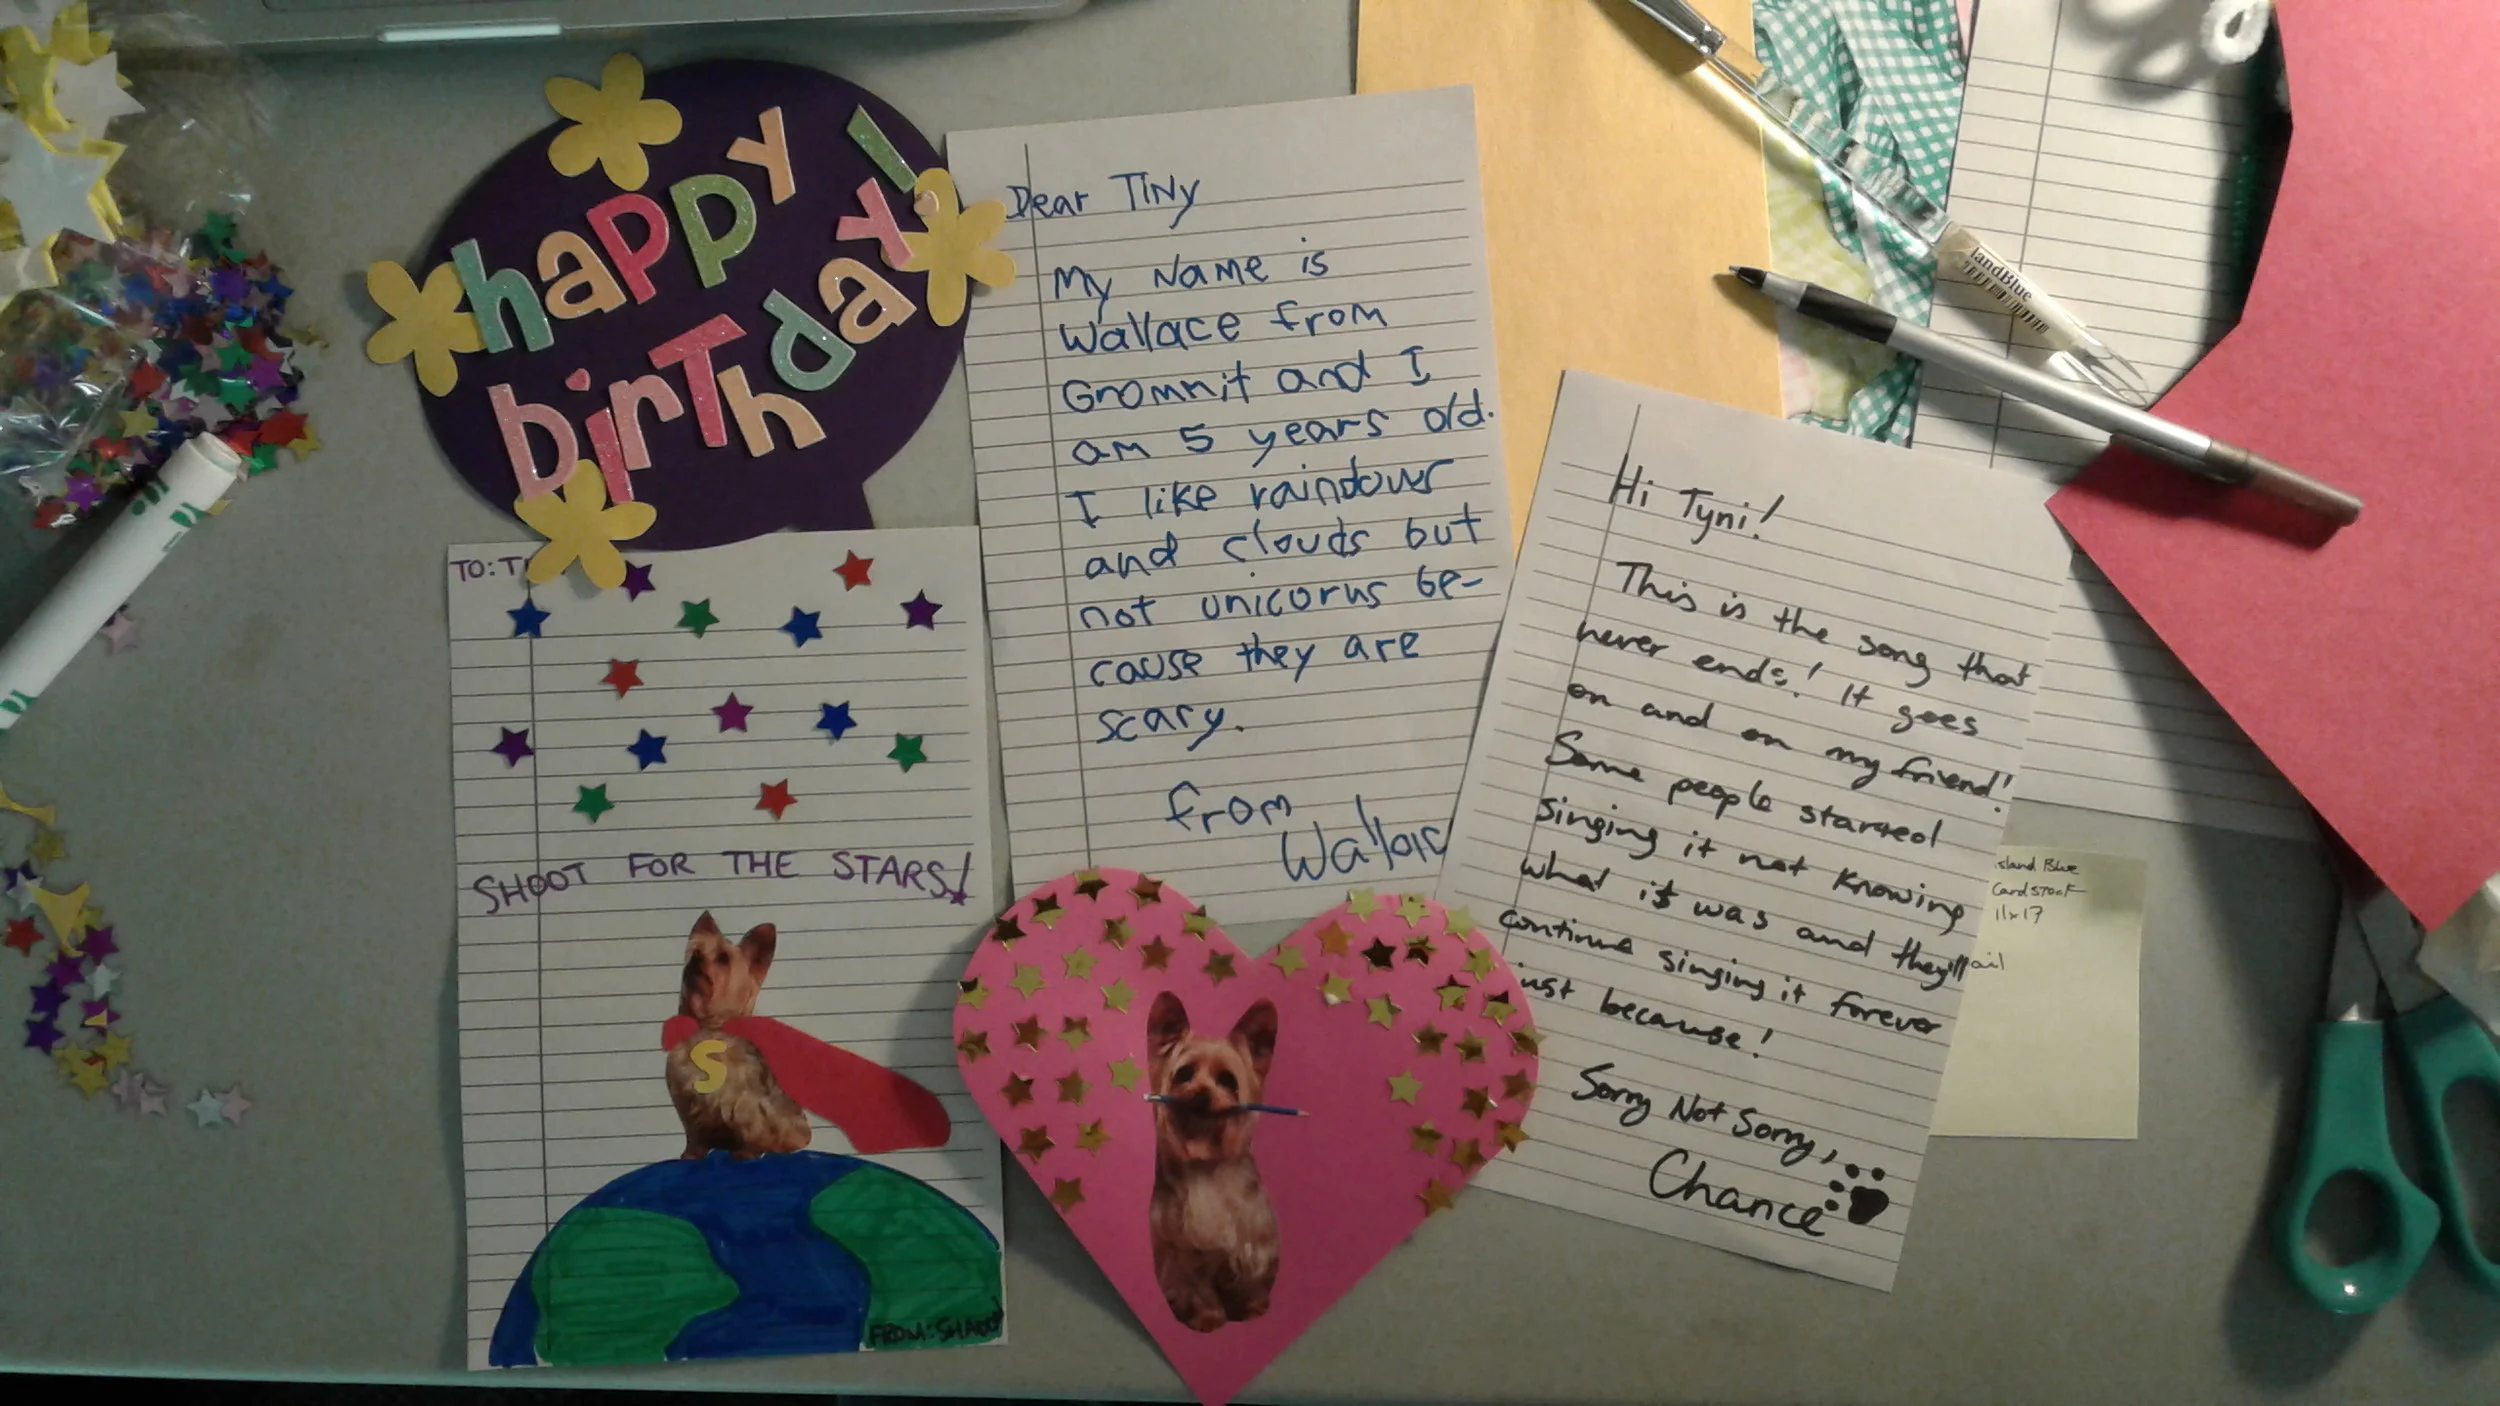 happy
birThday!
Dear TINy
My Name is
Wallace from
Gromnit and I
am 5 years old.
I like raindows
and clouds but
not unicorns be-
cause they are
scary.
from
Wallac
TO: T
SHOOT FOR THE STARS!
S
FROM: SHADO
Hi Tyni!
This is the song that
never ends! It goes
on and on my friend!
Some people starred
singing it not knowing
what it was and they'll
continue singing it forever
just because!
Sorry Not Sorry,
Chance
landBlue
sland Blue
Cardstock
11x17
ail